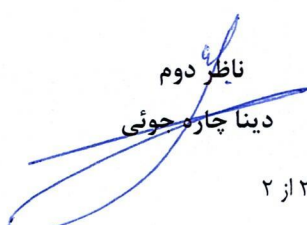 ناظر دوم
دینا چاره جوئی
۲ از ۲